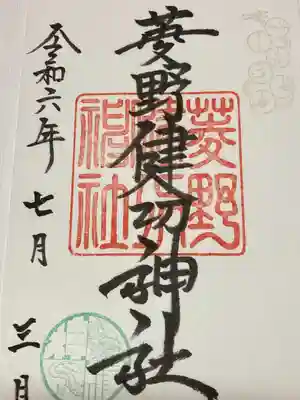 菱野健功神社
令和六年七月三日
菱野
神社